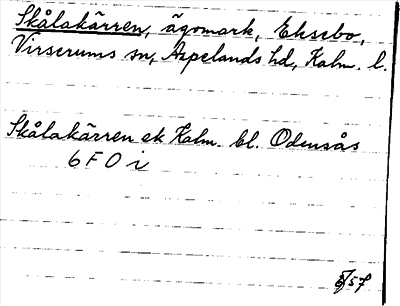 Skålakärren, ägomark, Eksebo,
Virserums sn, Aspelands hd, Kalm. l.
Skålakärren ek Kalm. bl. Odensås
6 F 0 i
5/57